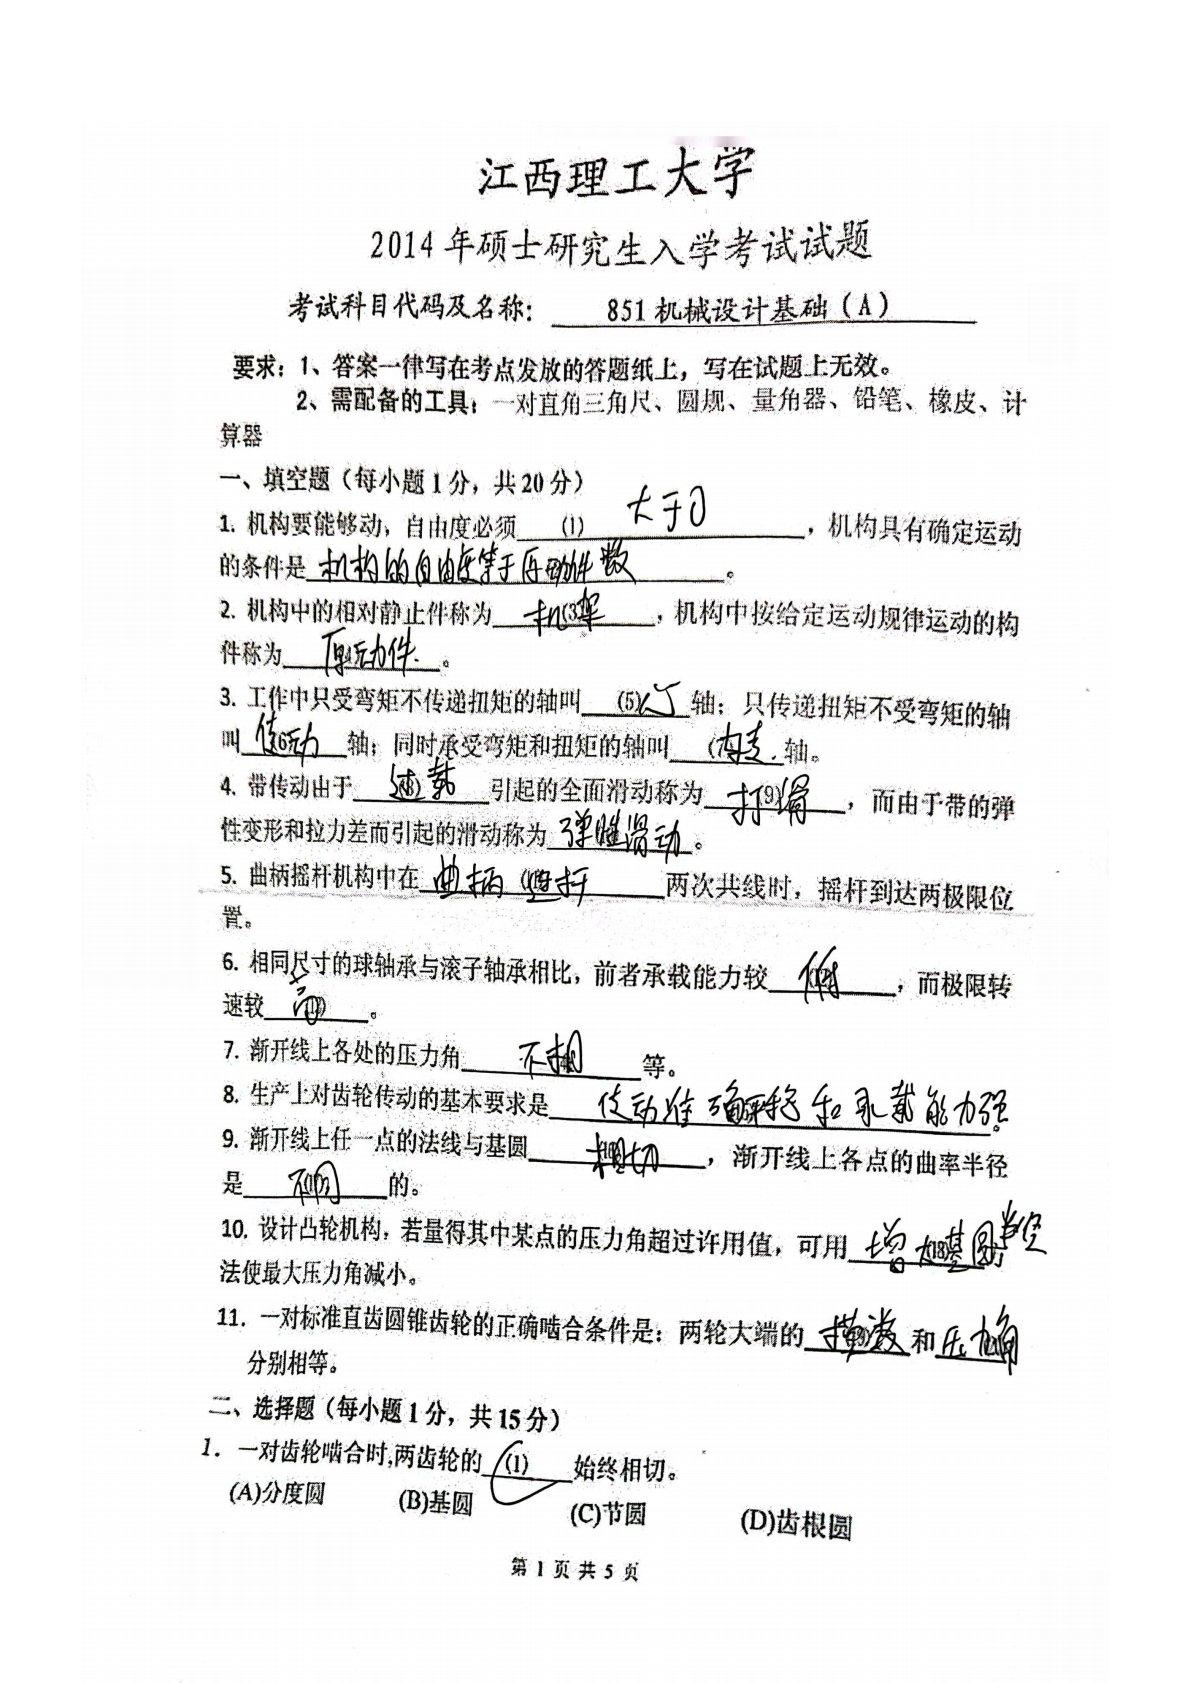 江西理工大学
2014年硕士研究生入学考试试题
考试科目代码及名称： 851机械设计基础（A）
要求：1、答案一律写在考点发放的答题纸上，写在试题上无效。
2、需配备的工具：一对直角三角尺、圆规、量角器、铅笔、橡皮、计
算器
一、填空题（每小题1分，共20分）
1. 机构要能够动，自由度必须 (1) 大于0 ，机构具有确定运动
的条件是 机构的自由度等于原动件数 。
2. 机构中的相对静止件称为 机(3)架 ，机构中按给定运动规律运动的构
件称为 原动件 。
3. 工作中只受弯矩不传递扭矩的轴叫 (5)心 轴；只传递扭矩不受弯矩的轴
叫 传动 轴；同时承受弯矩和扭矩的轴叫 轴。
4. 带传动出于 过载 引起的全面滑动称为 打(9)滑 ，而由于带的弹
性变形和拉力差而引起的滑动称为 弹性滑动 。
5. 曲柄摇杆机构中在 曲柄 连杆 两次共线时，摇杆到达两极限位
置。
6. 相同尺寸的球轴承与滚子轴承相比，前者承载能力较 ，而极限转
速较 高 。
7. 渐开线上各处的压力角 不相 等。
8. 生产上对齿轮传动的基本要求是 传动准确平稳和承载能力强 。
9. 渐开线上任一点的法线与基圆 相切 ，渐开线上各点的曲率半径
是 不同 的。
10. 设计凸轮机构，若量得其中某点的压力角超过许用值，可用 增大(18)基圆半径
法使最大压力角减小。
11. 一对标准直齿圆锥齿轮的正确啮合条件是：两轮大端的 模数 和 压力角
分别相等。
二、选择题（每小题1分，共15分）
1. 一对齿轮啮合时,两齿轮的 (1) 始终相切。
(A)分度圆 (B)基圆 (C)节圆 (D)齿根圆
第 1 页 共 5 页